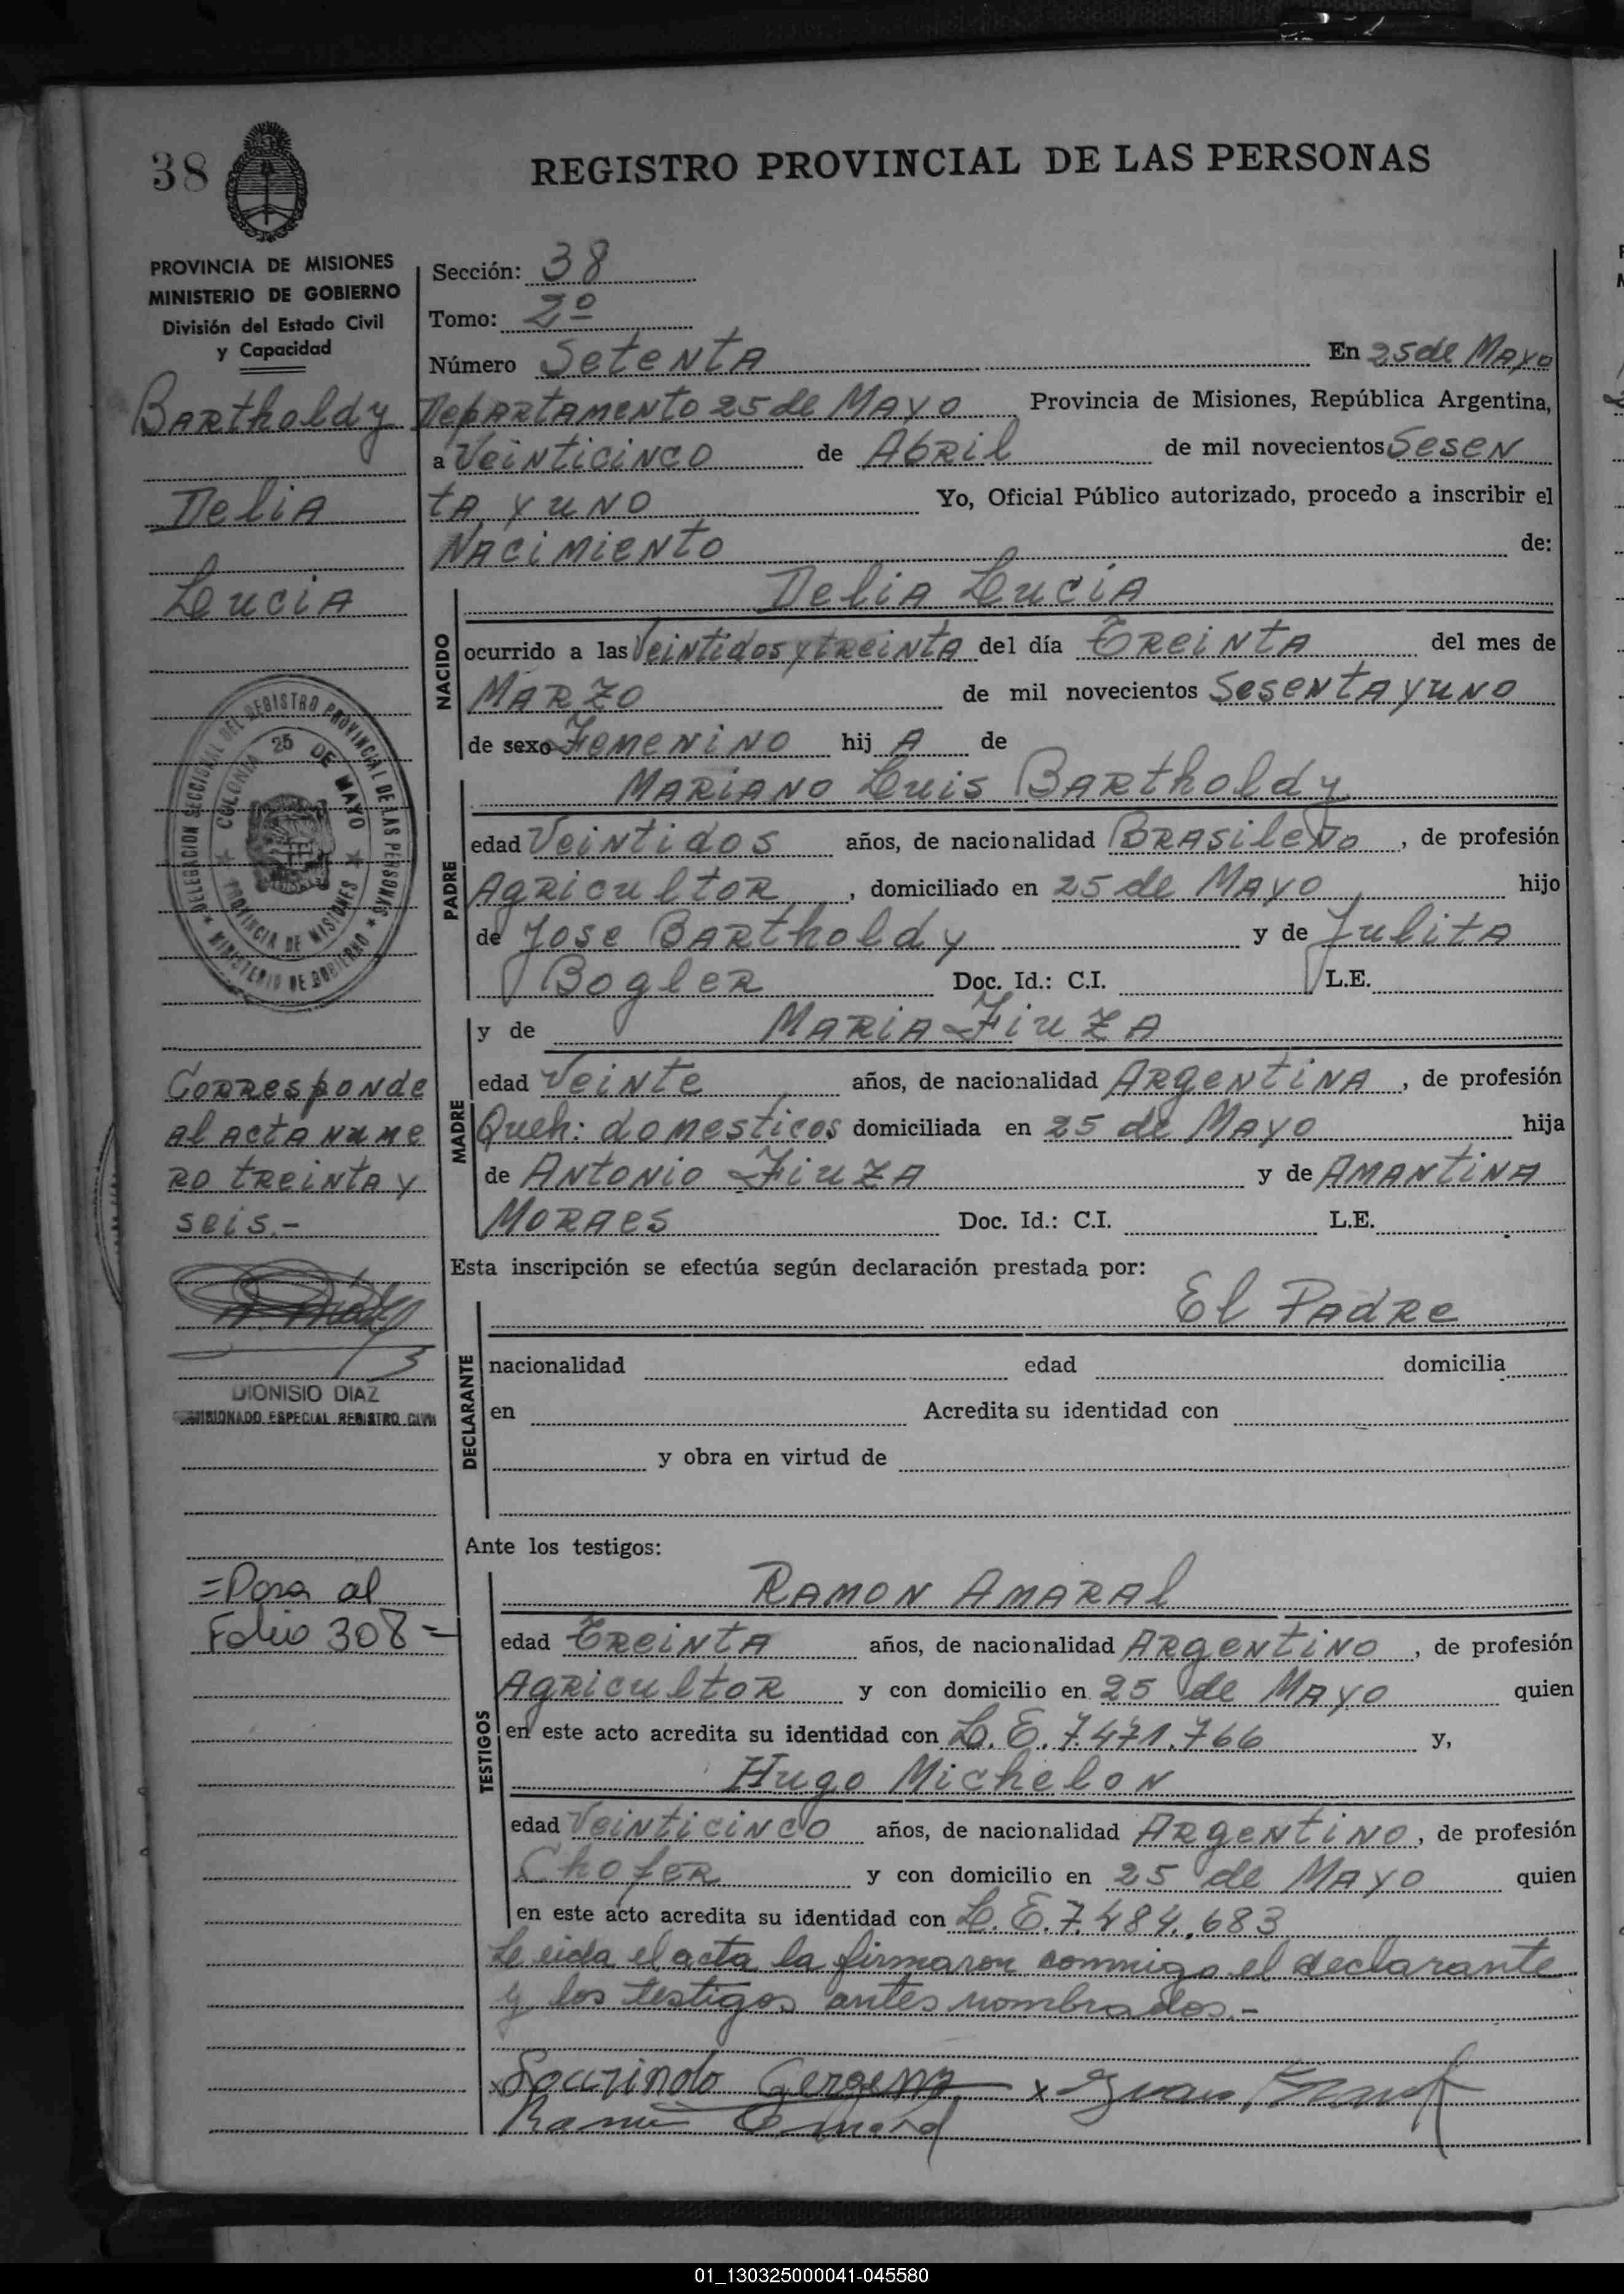 38
REGISTRO PROVINCIAL DE LAS PERSONAS
PROVINCIA DE MISIONES
MINISTERIO DE GOBIERNO
División del Estado Civil
y Capacidad
Bartholdy
Delia
Lucia
DELEGACION SECCIONAL DEL REGISTRO PROVINCIAL DE LAS PERSONAS
MINISTERIO DE GOBIERNO
COLONIA 25 DE MAYO
PROVINCIA DE MISIONES
Corresponde
al acta nume
ro treinta y
seis.-
DIONISIO DIAZ
ESPECIAL REGISTRO CIVIL
=Pasa al
Folio 308=
Sección: 38
Tomo: 2º
Número Setenta En 25 de Mayo
Departamento 25 de Mayo Provincia de Misiones, República Argentina,
a Veinticinco de Abril de mil novecientos Sesen
ta y uno Yo, Oficial Público autorizado, procedo a inscribir el
Nacimiento de:
Delia Lucía
NACIDO
ocurrido a las Veintidos y treinta del día Treinta del mes de
Marzo de mil novecientos Sesenta y uno
de sexo Femenino hij a de
Mariano Luis Bartholdy
PADRE
edad Veintidos años, de nacionalidad Brasileño, de profesión
Agricultor, domiciliado en 25 de Mayo hijo
de Jose Bartholdy y de Julita
Bogler Doc. Id.: C.I. L.E.
y de Maria Fiuza
MADRE
edad Veinte años, de nacionalidad Argentina, de profesión
Queh: domesticos domiciliada en 25 de Mayo hija
de Antonio Fiuza y de Amantina
Moraes Doc. Id.: C.I. L.E.
Esta inscripción se efectúa según declaración prestada por:
El Padre
DECLARANTE
nacionalidad edad domicilia
en Acredita su identidad con
y obra en virtud de
Ante los testigos:
Ramon Amaral
TESTIGOS
edad Treinta años, de nacionalidad Argentino, de profesión
Agricultor y con domicilio en 25 de Mayo quien
en este acto acredita su identidad con L.E. 7.471.766 y,
Hugo Michelon
edad Veinticinco años, de nacionalidad Argentino, de profesión
Chofer y con domicilio en 25 de Mayo quien
en este acto acredita su identidad con L.E. 7.484.683
Leida el acta la firmaron conmigo el declarante
y los testigos antes nombrados.-
01_130325000041-045580